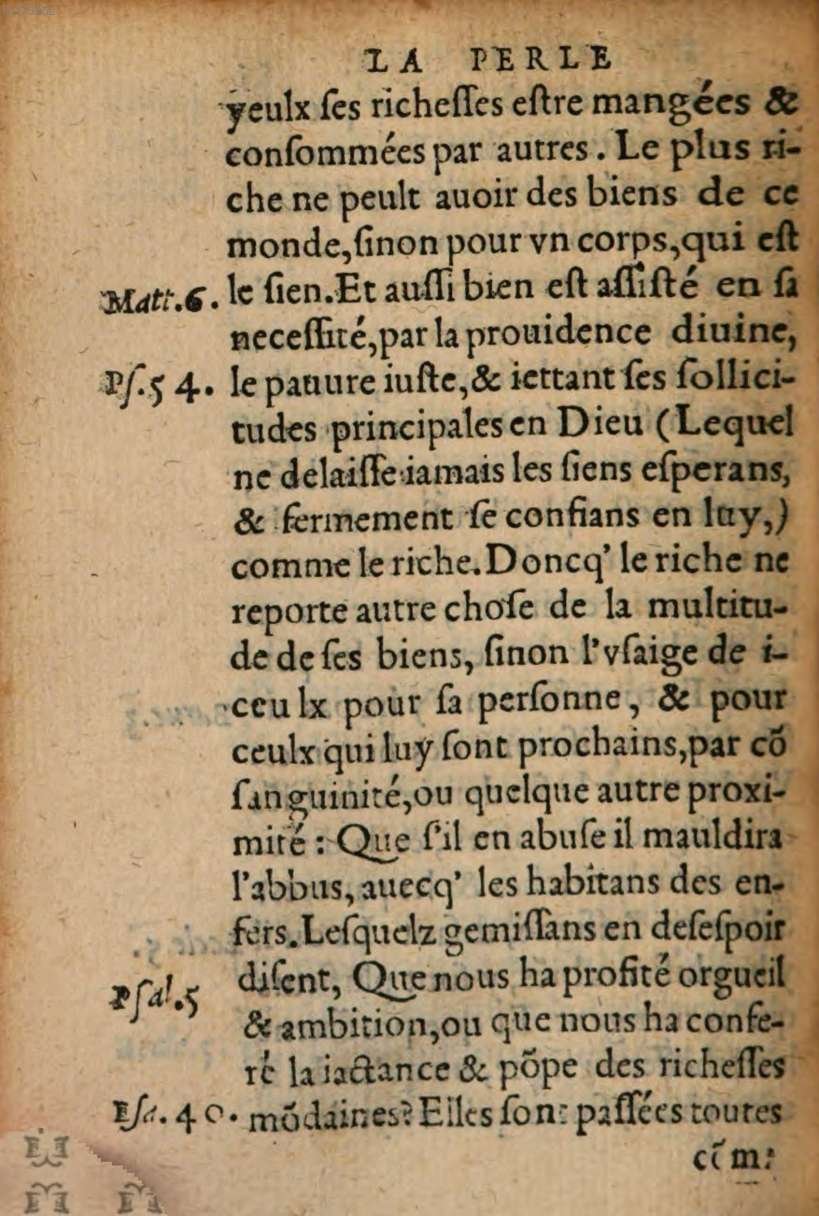 LA PERLE
yeulx ſes richeſſes eſtre mangées &
conſommées par autres. Le plus ri-
che ne peult auoir des biens de ce
monde, ſinon pour vn corps, qui eſt
Matt.6. le ſien. Et auſſi bien eſt aſſiſté en ſa
neceſſité, par la prouidence diuine,
Pſ.54. le pauure iuſte, & iettant ſes ſollici-
tudes principales en Dieu (Lequel
ne delaiſſe iamais les ſiens eſperans,
& fermement ſe confians en luy,)
comme le riche. Doncq' le riche ne
reporte autre choſe de la multitu-
de de ſes biens, ſinon l'vſaige de i-
ceulx pour ſa perſonne, & pour
ceulx qui luy ſont prochains, par cõ
ſanguinité, ou quelque autre proxi-
mité : Que ſ'il en abuſe il mauldira
l'abbus, auecq' les habitans des en-
fers. Leſquelz gemiſſans en deſeſpoir
Pſal.5 diſent, Que nous ha profité orgueil
& ambition, ou que nous ha confe-
ré la iactance & põpe des richeſſes
Eſa.40. mõdaines? Elles ſont paſſées toutes